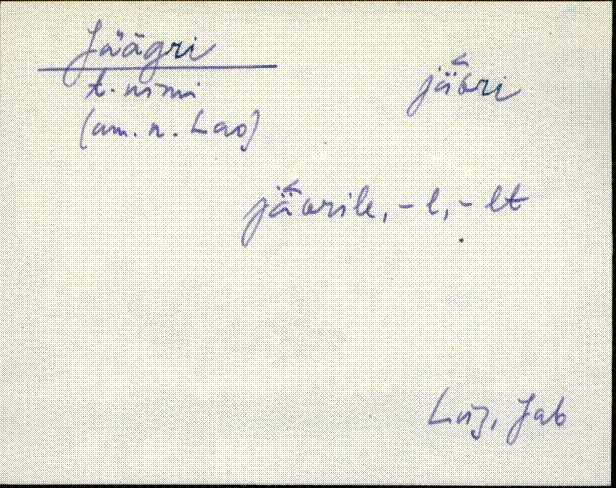 Jäägri
t. nimi
(am. n. Lao)
jä̆ɢri
jä̆ɢrile, -l, -lt
Lüg, Jab